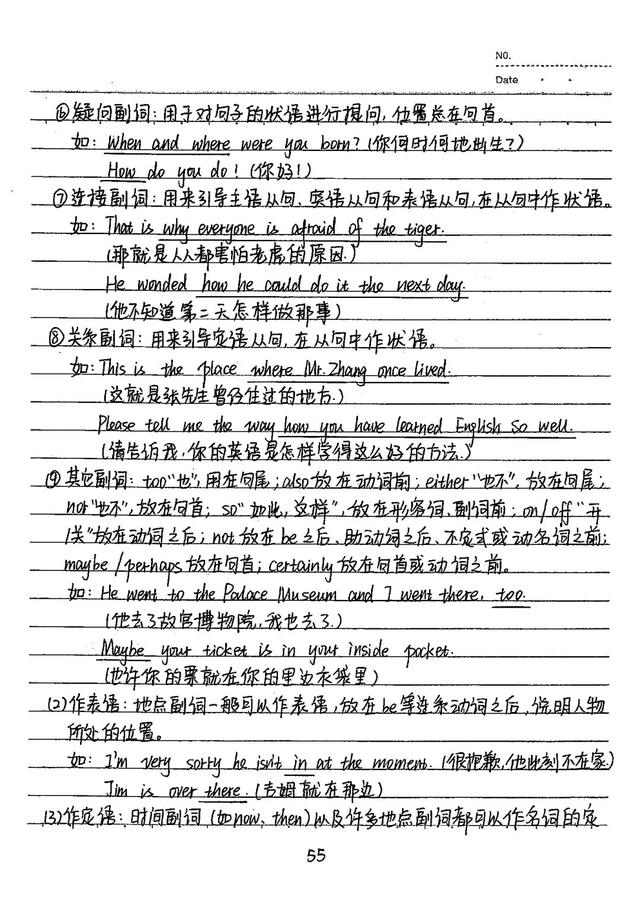 NO.
Date
⑥疑问副词：用于对句子的状语进行提问，位置总在句首。
如：When and where were you born?(你何时何地出生?)
How do you do!(你好!)
⑦连接副词：用来引导主语从句、宾语从句和表语从句，在从句中作状语。
如：That is why everyone is afraid of the tiger.
(那就是人人都害怕老虎的原因.)
He wonded how he could do it the next day.
(他不知道第二天怎样做那事)
⑧关系副词：用来引导定语从句，在从句中作状语。
如：This is the place where Mr. Zhang once lived.
(这就是张先生曾经住过的地方.)
Please tell me the way how you have learned English so well.
(请告诉我，你的英语是怎样学得这么好的方法.)
⑨其它副词：too"也"，用在句尾；also放在动词前；either"也不"，放在句尾；
nor"也不"，放在句首；so"如此，这样"，放在形容词、副词前；on/off"开
/关"放在动词之后；not放在be之后、助动词之后、不定式或动名词之前；
maybe/perhaps放在句首；certainly放在句首或动词之前。
如：He went to the Palace Museum and I went there, too.
(他去了故宫博物院，我也去了.)
Maybe your ticket is in your inside pocket.
(也许你的票就在你的里边衣袋里)
(2)作表语：地点副词一般可以作表语，放在be等连系动词之后，说明人物
所处的位置。
如：I'm very sorry he isn't in at the moment.(很抱歉，他此刻不在家.)
Jim is over there.(吉姆就在那边)
(3)作定语：时间副词(如now、then)以及许多地点副词都可以作名词的定
55